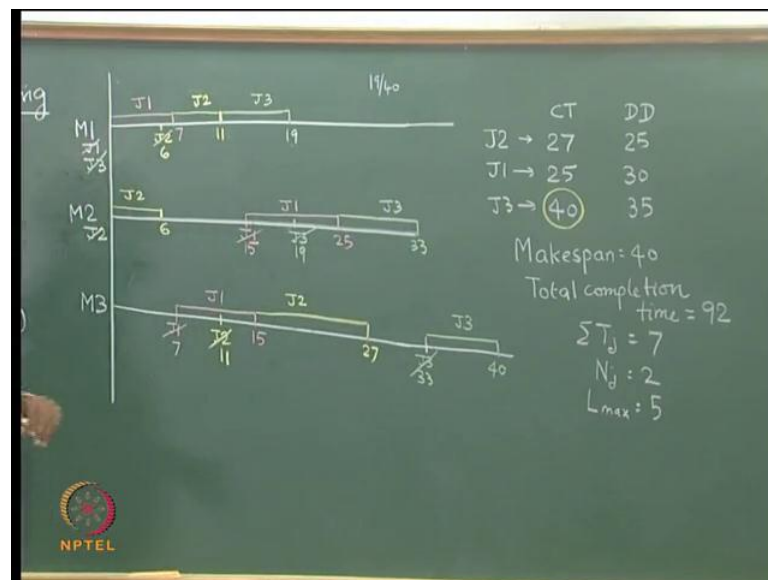 ng
19/40
J1 J2 J3
M1
J1
J3
J2
6 7 11 19
J2
M2
J2
6
J1
J1
15
J3
19
25
J3
33
M3
J1
J1
7
J2
J2
11
15
27
J3
J3
33
40
CT DD
J2 → 27 25
J1 → 25 30
J3 → 40 35
Makespan = 40
Total completion
time = 92
ΣTj = 7
Nj : 2
Lmax : 5
)
NPTEL